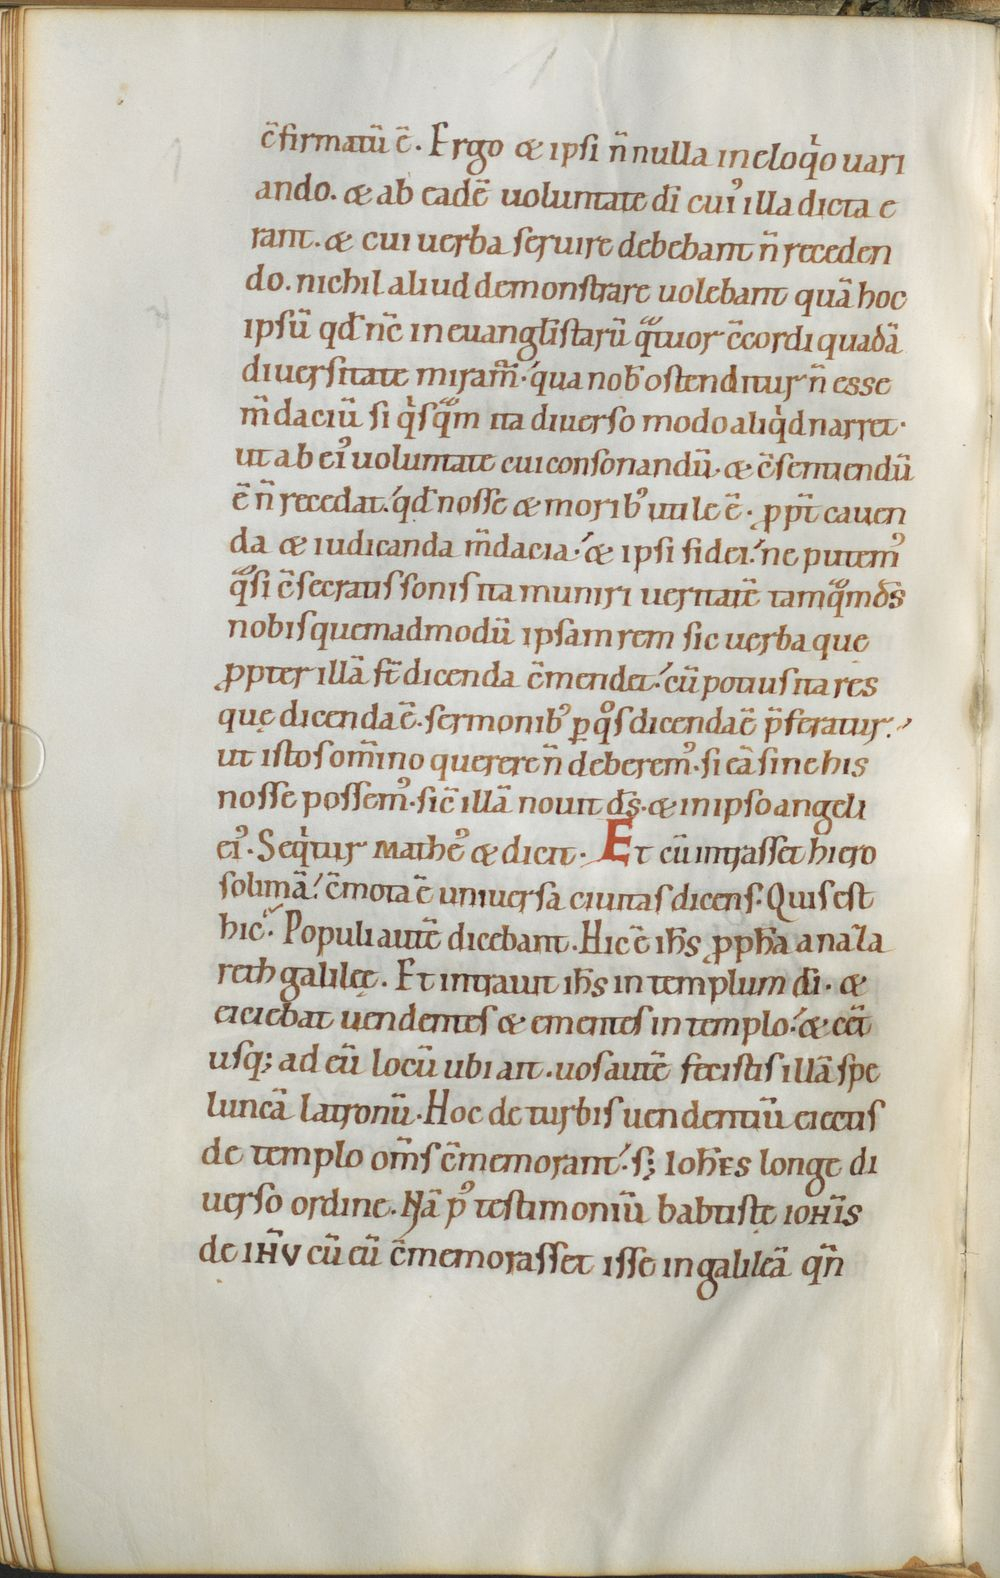 c̄firmatū ē. Ergo & ipsi n̄ nulla in eloqͥo uari
ando. & ab eadē uoluntate dī cuiꝰ illa dicta e
rant. & cui uerba seruire debebant n̄ receden
do. nichil aliud demonstrare uolebant quā hoc
ipsū qđ nc̄ in euangłistarū qͣtuor c̄cordi quadā
diuersitate miram̄. qua nob̄ ostenditur n̄ esse
m̄daciū si qͥsqͣm ita diuerso modo aliqͥd narret.
ut ab eiꝰ uoluntate cui consonandū. & c̄sentiendū
ē n̄ recedat. qđ nosse & moribꝰ utile ē. ꝓpt̄ cauen
da & iudicanda m̄dacia. & ipsi fidei. ne putemꝰ
qͣsi c̄secratis sonis ita muniri ueritatē tamqͣm d̄s
nobis quemadmodū ipsam rem sic uerba que
ꝓpter illā st̄ dicenda c̄mendet. cū potius ita res
quę dicenda ē. sermonibꝰ ꝑ qͦs dicenda ē p̄feratur.
ut istos om̄ino querere n̄ deberemꝰ. si eā sine his
nosse possemꝰ. sic̄ illā nouit d̄s. & in ipso angeli
eiꝰ. Seqͥtur matheꝰ & dicit. Et cū intrasset hiero
solimā. c̄mota ē uniuersa ciuitas dicens. Quis est
hic. Populi autē dicebant. Hic ē ih̄s ꝓph̄a a naza
reth galileę. Et intrauit ih̄s in templum dī. &
eiciebat uendentes & ementes in templo. & cet̄
usq; ad eū locū ubi ait. uos autē fecistis illā spe
luncā latronū. Hoc de turbis uendentiū eiectis
de templo om̄s c̄memorant. s; Ioh̄es longe di
uerso ordine. Nā pꝰ testimoniū babtistę ioh̄is
de ih̄u cū eū c̄memorasset isse in galileā qn̄